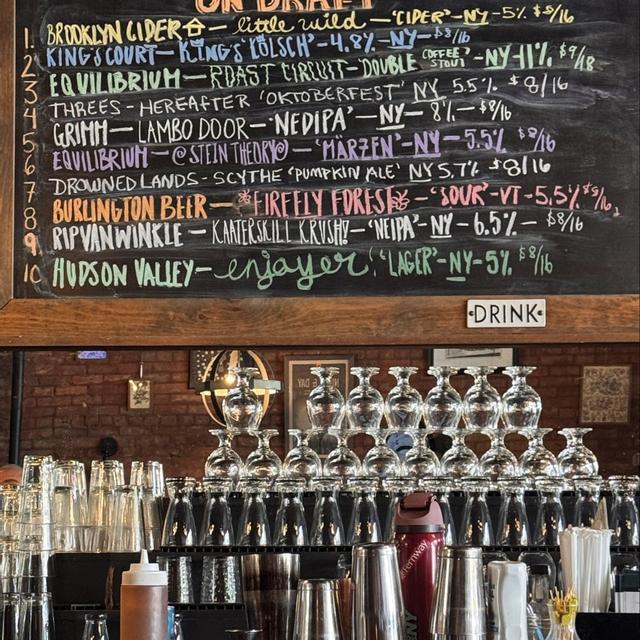 ON DRAFT
1. BROOKLYN CIDER - little wild - "CIDER" - NY - 5% $8/16
2 KING'S COURT - KING'S KOLSCH - 4.8% - NY - $8/16
3 EQUILIBRIUM - ROAST CIRCUIT - DOUBLE COFFEE STOUT - NY - 11% $9/8
4 THREES - HEREAFTER 'OKTOBERFEST' NY 5.5% $8/16
5 GRIMM - LAMBO DOOR - 'NEDIPA' - NY - 8% - $8/16
6 EQUILIBRIUM - @ STEIN THEORY @ - 'MÄRZEN' - NY - 5.5% $8/16
7 DROWNED LANDS - SCYTHE 'PUMPKIN ALE' NY 5.7% $8/16
8 BURLINGTON BEER - FIREFLY FOREST - 'SOUR' - VT - 5.5% $8/16
9 RIPVANWINKLE - KAATERSKILL KRUSH! - 'NEIPA' - NY - 6.5% - $8/16
10 HUDSON VALLEY - enjoyer 'LAGER' - NY - 5% $8/16
DRINK